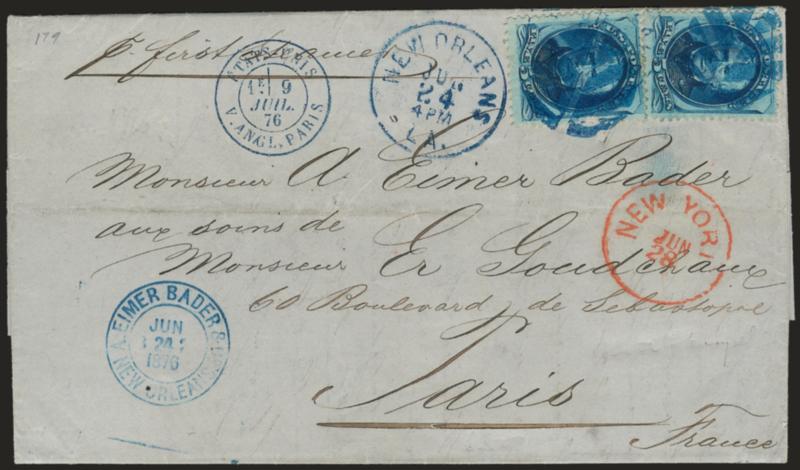 179
pr first steamer
ETATS-UNIS
1E 9
JUIL.
76
V. ANGL. PARIS
NEW ORLEANS
JUN
24
4PM
LA.
Monsieur A Eimer Bader
aux soins de
Monsieur Er Goudchaux
60 Boulevard de Sebastopol
Paris
France
NEW YORK
JUN
28
A. EIMER BADER &
JUN
24
1876
NEW ORLEANS